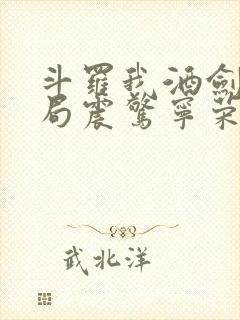 斗羅我酒劍
局震驚寧榮
武北洋